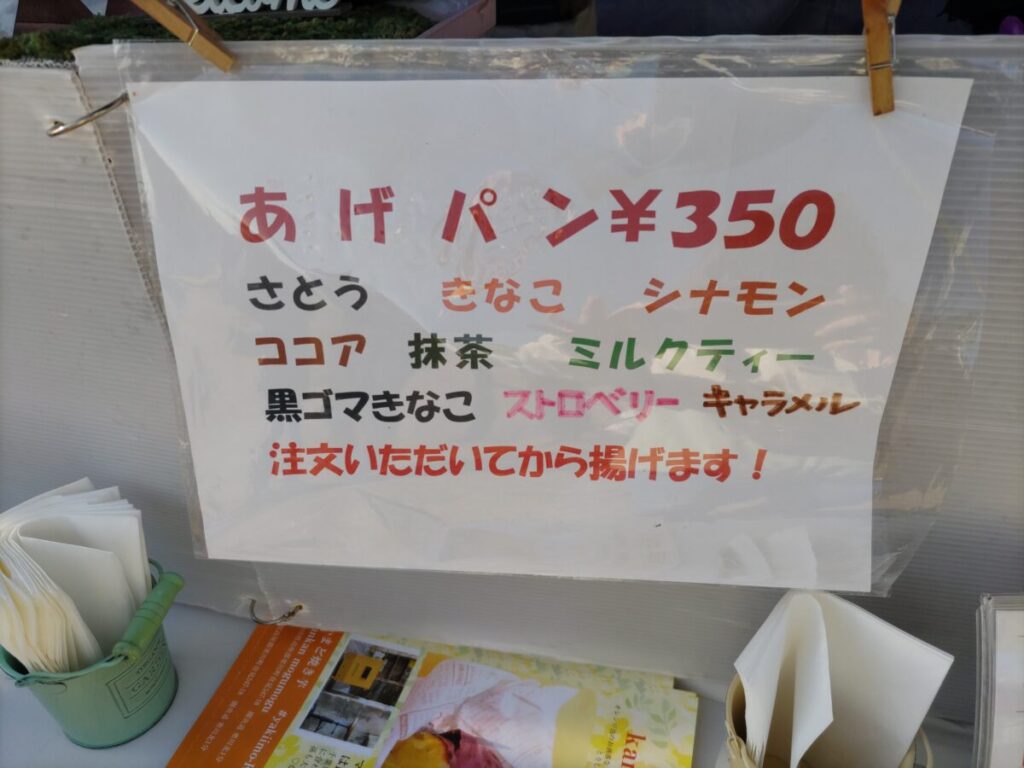 あげパン¥350
さとう きなこ シナモン
ココア 抹茶 ミルクティー
黒ゴマきなこ ストロベリー キャラメル
注文いただいてから揚げます!
mogumogu
#yakiimo